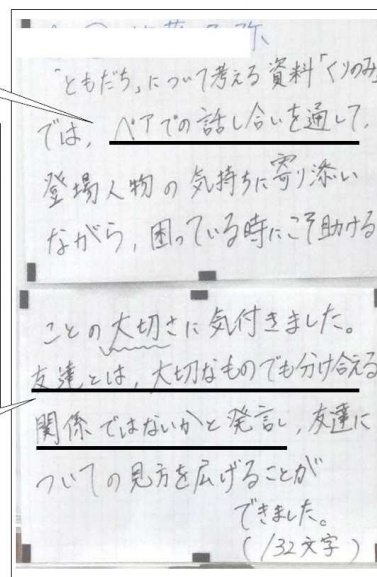 「ともだち」について考える資料「くりのみ」
では、ペアでの話し合いを通して、
登場人物の気持ちに寄り添い
ながら、困っている時にこそ助ける
ことの大切さに気付きました。
友達とは、大切なものでも分け合える
関係ではないかと発言し、友達に
ついての見方を広げることが
できました。
(132文字)